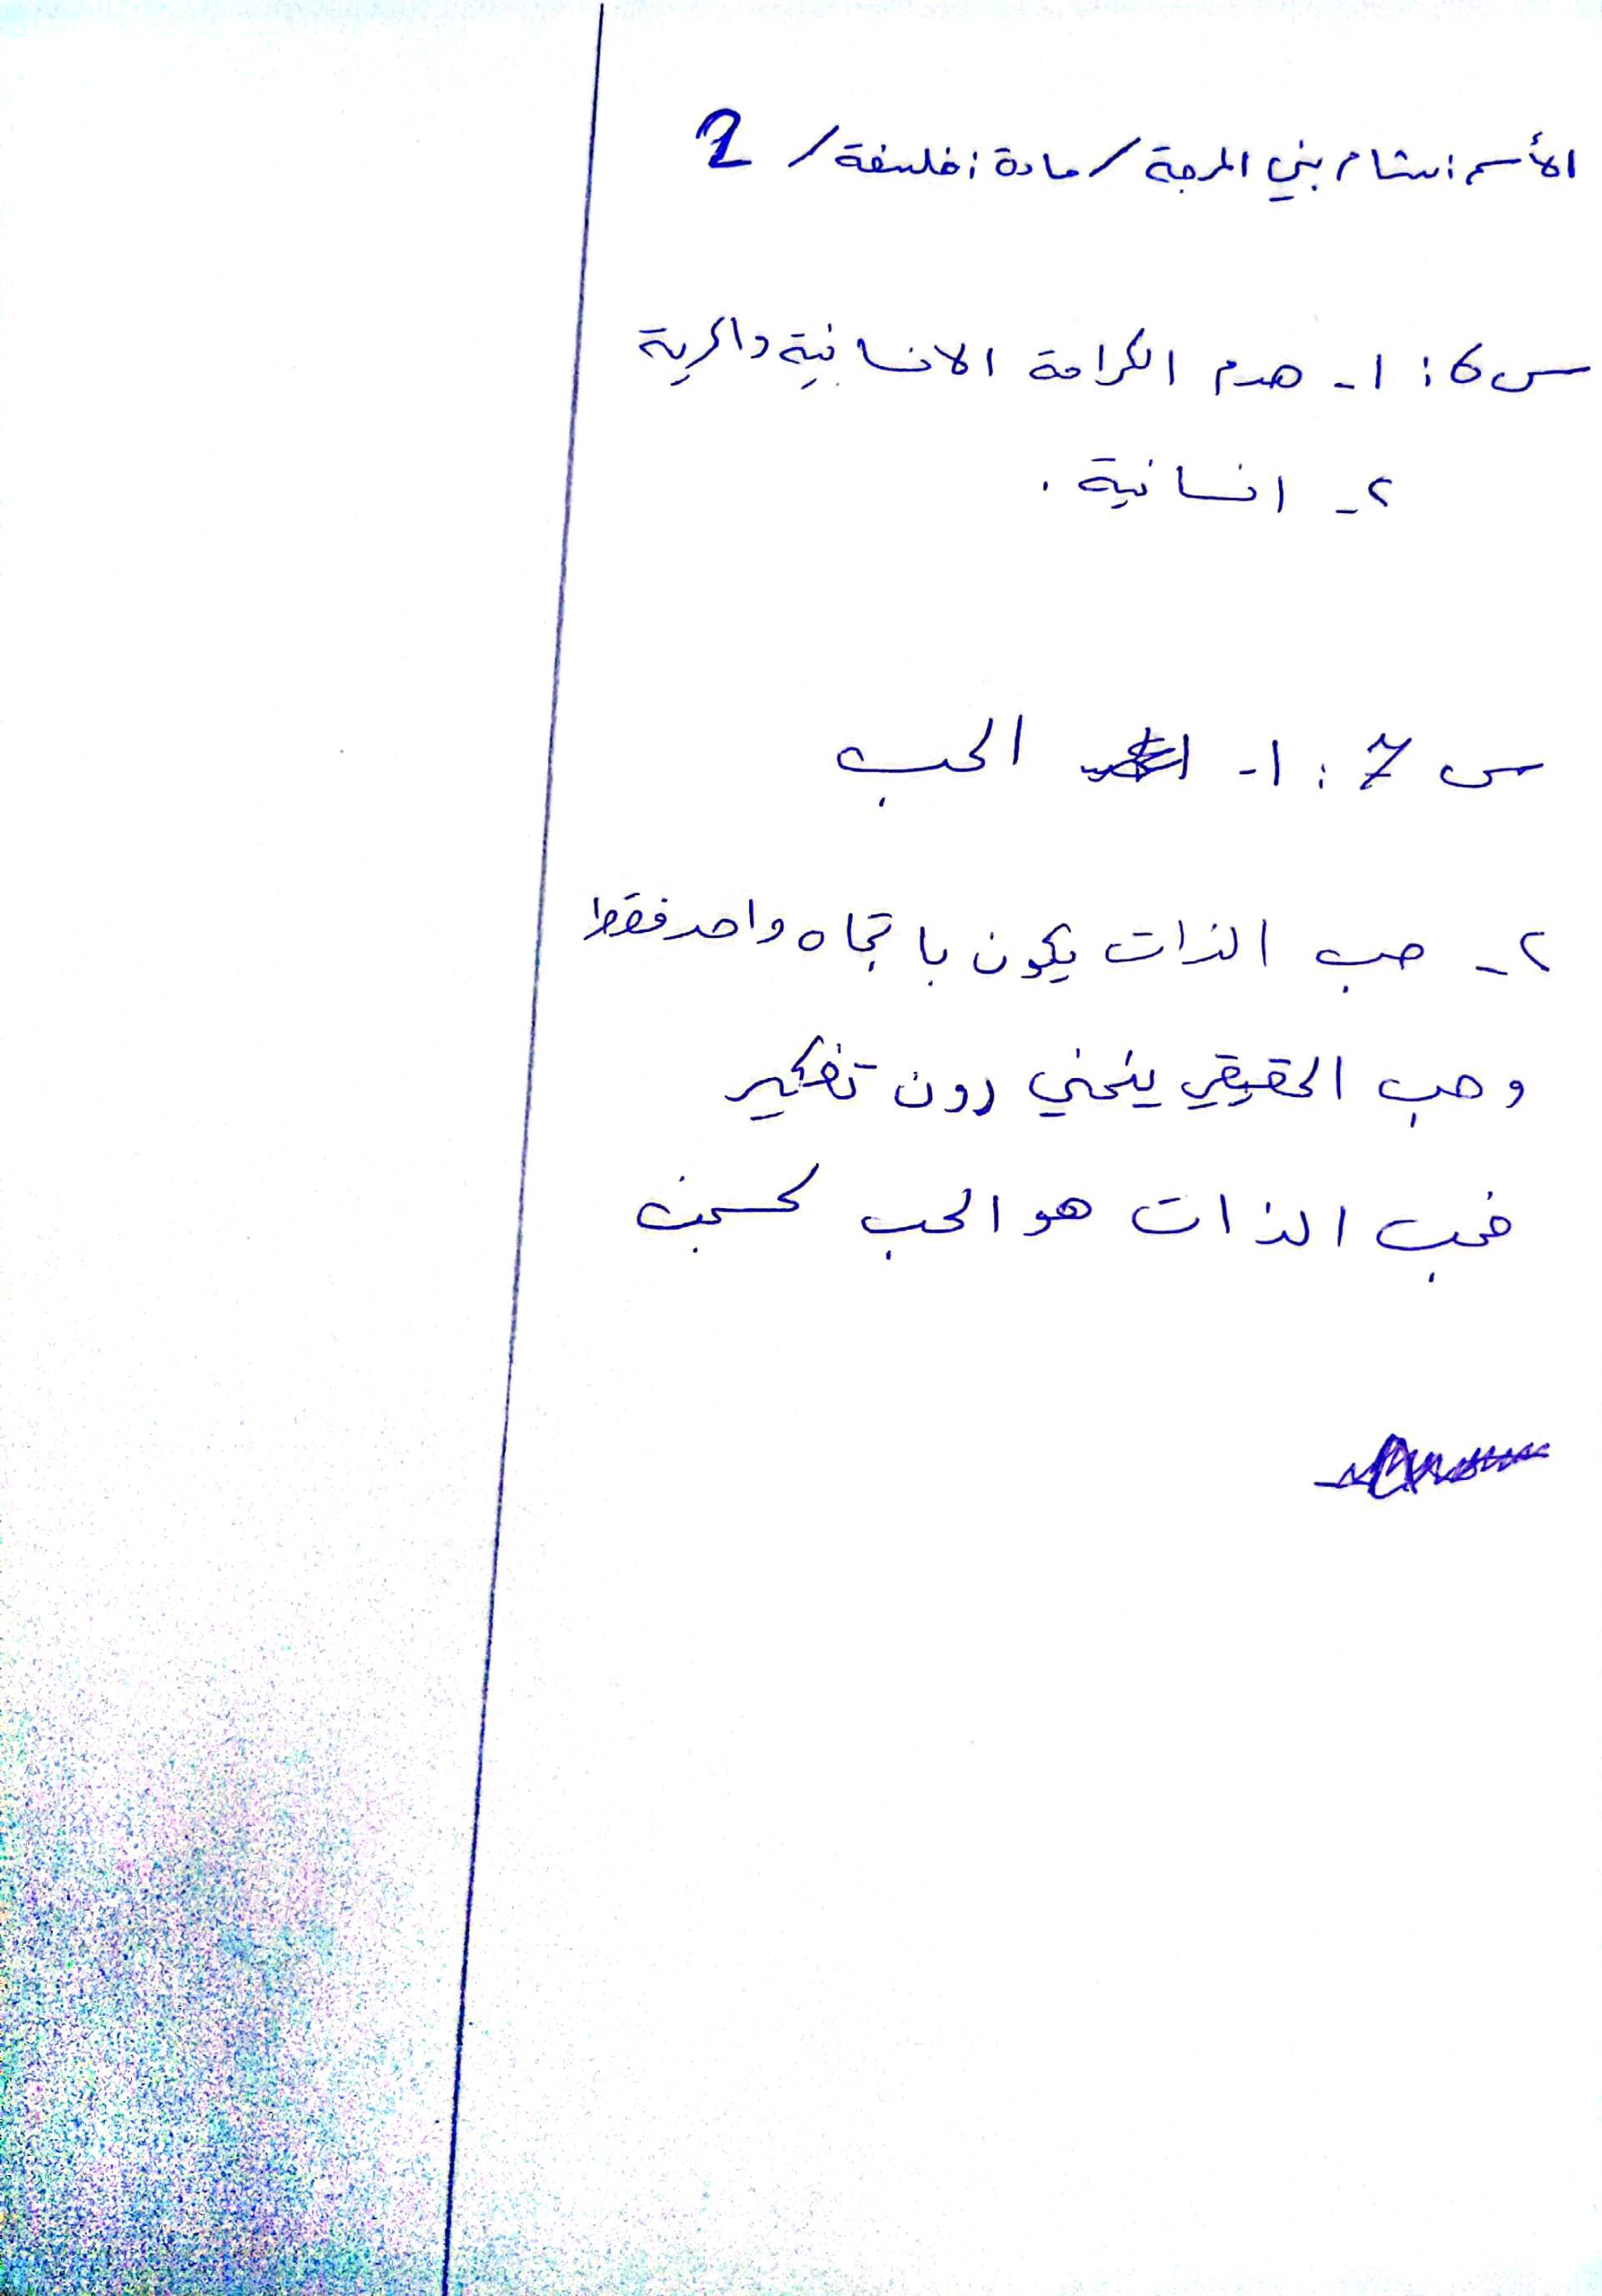 الأسم: بشار بني المرجة / مادة: فلسفة / 2
س6: ١- هدم الكرامة الانسانية والحرية
٢- انسانية.
س 7: ١- الحب
٢- حب الذات يكون باتجاه واحد فقط
وحب الحقيقي ينحني دون تفكير
فحب الذات هو الحب